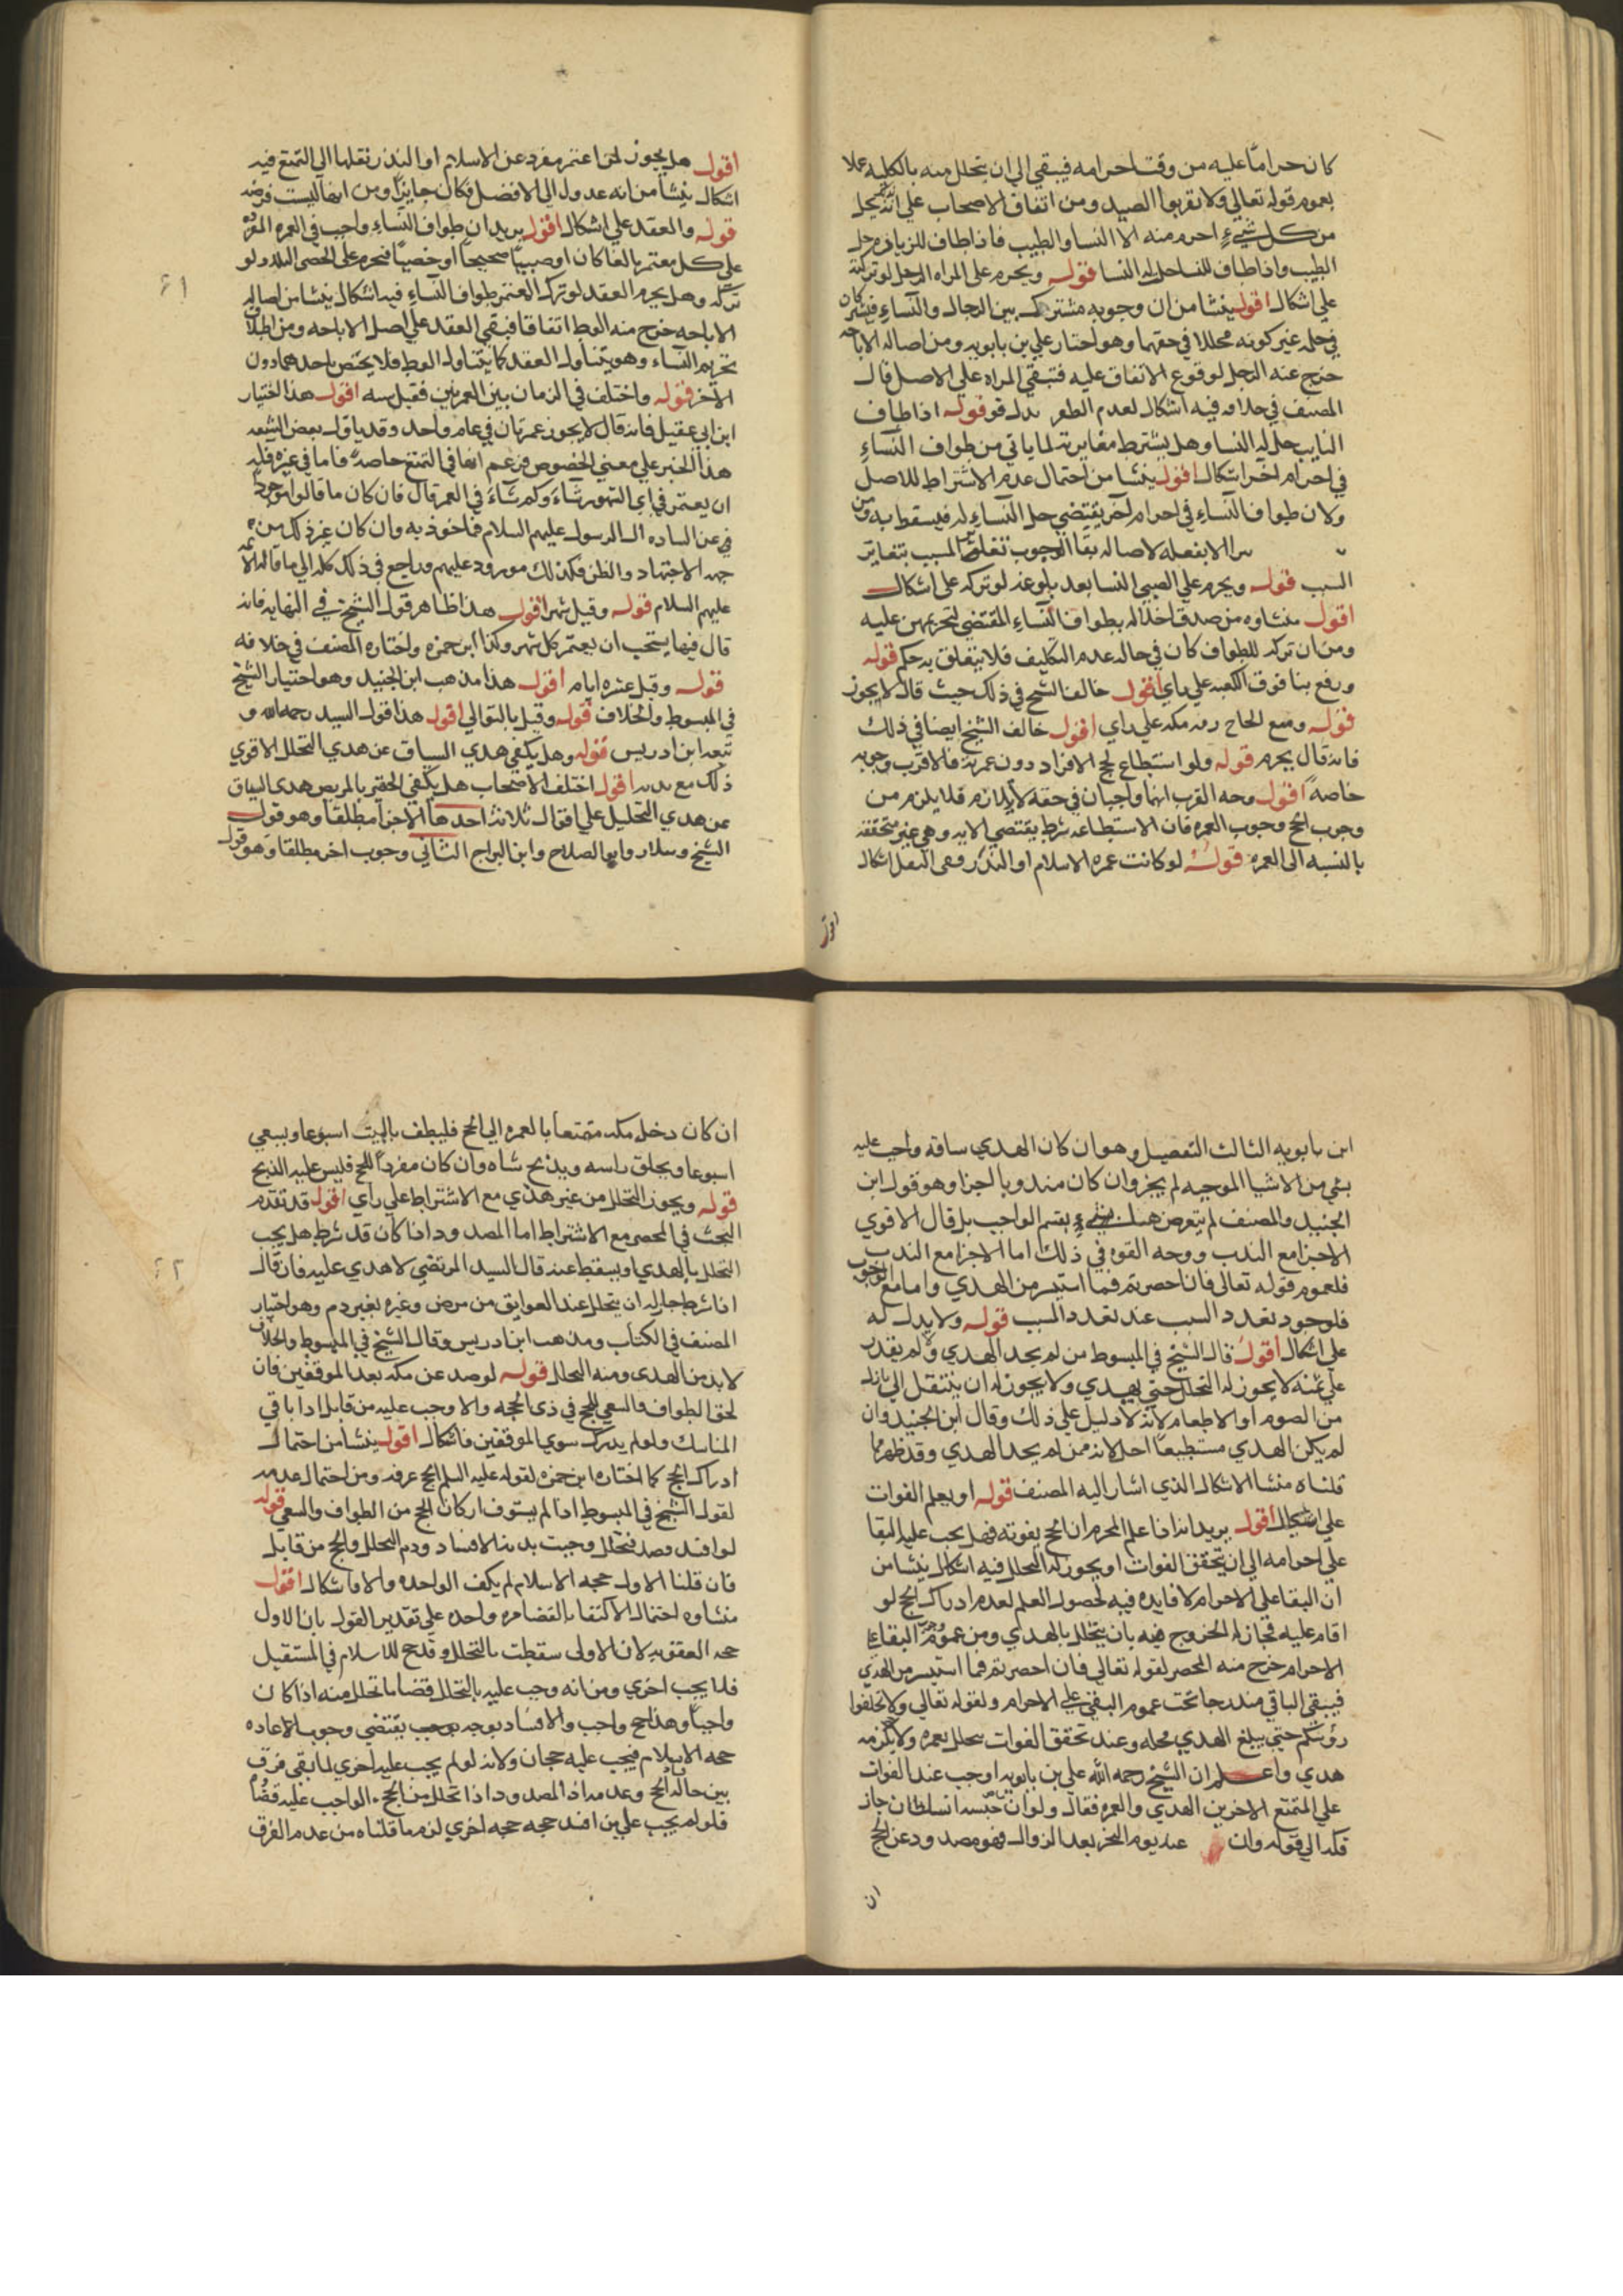 كان حراما عليه من وقت احرامه فيبقى الى ان يتحلل منه بالكليه عملا
بعموم قوله تعالى ولا تقربوا الصيد ومن اتفاق الاصحاب على انه يحل
من كل شيء احرم منه الا النسا والطيب فاذا طاف للزياره حل
الطيب واذا طاف للنسا حل له النسا قوله ويحرم على المراه الرجل لو تركته
على اشكال اقول ينشا من ان وجوبه مشترك بين الرجال والنساء فيشتركان
في حله غير كونه محللا في حقهما وهو اختيار علي بن بابويه ومن اصاله الاباحه
خرج عنه الرجل لوقوع الاتفاق عليه فتبقى المراه على الاصل قال
المصنف في خلافه فيه اشكال لعدم الظفر بدليل قوله اذا طاف
النايب حل له النسا وهل يشترط مغايرته لما ياتي من طواف النساء
في احرام اخر اشكال اقول ينشا من احتمال عدم الاشتراط للاصل
ولان طواف النساء في احرام اخر يقتضي حل النساء له فيسقط به ومن
الا بفعله لاصاله بقا الوجوب تتعلق المسبب بتغاير
السبب قوله ويحرم على الصبي النسا بعد بلوغه لو تركه على اشكال
اقول منشاوه من صدق اخلاله بطواف النساء المقتضي لتحريمهن عليه
ومن ان تركه للطواف كان في حاله عدم التكليف فلا يتعلق به حكم قوله
ورفع بنا فوق الكعبه على راي اقول خالف الشيخ في ذلك حيث قال لا يجوز
قوله ومنع الحاج دور مكه على راي اقول خالف الشيخ ايضا في ذلك
فانه قال يحرم قوله ولو استطاع لحج الافراد دون عمرته فالاقرب وجوبه
خاصه اقول وجه القرب انهما واجبان في حقه لا يلزم فلا يلزم من
وجوب الحج وجوب العمره فان الاستطاعه شرط بمقتضى الايه وهي غير متحققه
بالنسبه الى العمره قوله لو كانت عمره الاسلام او النذر ففي النقل اشكال
اقول
اقول هل يجوز لمن اعتمر مفرده عن الاسلام او النذر نقلها الى التمتع فيه
اشكال ينشا من انه عدول الى الافضل فكان جايزا ومن انها ليست فرضه
قوله والعقد على اشكال اقول يريد ان طواف النساء واجب في العمره المفرده
على كل معتمر بالغا كان او صبيا صحيحا او خصيا فيحرم على الخصي النساء لو
تركه وهل يحرم العقد لو ترك المعتمر طواف النساء فيه اشكال ينشا من اصاله
الاباحه خرج منه الوطء اتفاقا فبقي العقد على اصل الاباحه ومن اطلاق
تحريم النساء وهو يتناول العقد كما يتناول الوطء فلا يختص باحدهما دون
الاخر قوله واختلف في الزمان بين العمرتين فقيل سنه اقول هذا اختيار
ابن ابي عقيل فانه قال لا يجوز عمرتان في عام واحد وقد تاول بعض الشيعه
هذا الخبر على معنى الخصوص فزعم انها في التمتع خاصه فاما في غيره فله
ان يعتمر في اي الشهور شاء وكم شاء في العمر قال فان كان ما قالوا موجودا
في عن الساده ال الرسول عليهم السلام فماخوذ به وان كان غير ذلك من
جهه الاجتهاد والظن فكذلك مردود عليهم وراجع في ذلك كله الى ما قالت الائمه
عليهم السلام قوله وقيل شهر اقول هذا ظاهر قول الشيخ في النهايه فانه
قال فيها يستحب ان يعتمر كل شهر وكذا ابن حمزه واختاره المصنف في خلافه
قوله وقيل عشره ايام اقول هذا مذهب ابن الجنيد وهو اختيار الشيخ
في المبسوط والخلاف قوله وقيل بالتوالي اقول هذا قول السيد رحمه الله و
تبعه ابن ادريس قوله وهل يكفي هدي السياق عن هدي التحلل الاقوى
ذلك مع ندبه اقول اختلف الاصحاب هل يكفي المحصر بالمرض هدي السياق
عن هدي التحليل على اقوال ثلاثه احدها الاجزا مطلقا وهو قول
الشيخ وسلار وابو الصلاح وابن البراج الثاني وجوب اخر مطلقا وهو قول
ابن بابويه الثالث التفصيل وهو ان كان الهدي ساقه واجب عليه
بشي من الاشيا الموجبه لم يجز وان كان مندوبا اجزا وهو قول ابن
الجنيد والمصنف لم يتعرض هنا بشيء بقسم الواجب بل قال الاقوى
الاجزا مع الندب ووجه القوه في ذلك اما الاجزا مع الندب
فلعموم قوله تعالى فان احصرتم فما استيسر من الهدي واما مع الوجوب
فلوجود تعدد السبب عند تعدد المسبب قوله ولا بدل له
على اشكال اقول قال الشيخ في المبسوط من لم يجد الهدي ولا يقدر
على ثمنه لا يجوز له التحلل حتى يهدي ولا يجوز له ان ينتقل الى بدله
من الصوم او الاطعام لانه لا دليل على ذلك وقال ابن الجنيد وان
لم يكن الهدي مستطيعا احل لانه ممن لم يجد الهدي وقد ظهر مما
قلناه منشا الاشكال الذي اشار اليه المصنف قوله او يعلم الفوات
على اشكال اقول يريد انه اذا علم المحرم ان الحج يفوته فهل يجب عليه البقا
على احرامه الى ان يتحقق الفوات او يجوز له التحلل فيه اشكال ينشا من
ان البقا على الاحرام لا فايده فيه لحصول العلم لعدم ادراك الحج لو
اقام عليه فجاز له الخروج فيه بان يتحلل بالهدي ومن عموم البقا على
الاحرام خرج منه المحصر لقوله تعالى فان احصرتم فما استيسر من الهدي
فيبقى الباقي مندرجا تحت عموم البقى على الاحرام ولقوله تعالى ولا تحلقوا
رؤسكم حتى يبلغ الهدي محله وعند تحقق الفوات يتحلل بعمره ولا يلزمه
هدي واعلم ان الشيخ رحمه الله علي بن بابويه اوجب عند الفوات
على المتمتع الاخرين الهدي والعمره فقال ولو ان حبسه انسلطان جاز
قله الى قوله وان عنه يوم النحر بعد الزوال فهو مصدود عن الحج
ان
ان كان دخل مكه متمتعا بالعمره الى الحج فليطف بالبيت اسبوعا ويسعى
اسبوعا ويحلق راسه ويذبح شاه وان كان مفردا للحج فليس عليه الذبح
قوله ويجوز التحلل من غير هدي مع الاشتراط على راي اقول قد تقدم
البحث في المحصر مع الاشتراط اما المصدود اذا كان قد شرط هل يجب
التحلل بالهدي او يسقط عنه قال السيد المرتضى لا هدي عليه فانه قال
اذا شرط جاز له ان يتحلل عند العوايق من مرض وغيره بغير دم وهو اختيار
المصنف في الكتاب ومذهب ابن ادريس وقال الشيخ في المبسوط والخلاف
لا بد من الهدى ومنه التحلل قوله لو صد عن مكه بعد الموقفين فان
لحق الطواف والسعي للحج في ذي الحجه والا وجب عليه من قابل ادا باقي
المناسك ولو لم يدرك سوى الموقفين فاشكال اقول ينشا من احتمال
ادراك الحج كما اختاره ابن حمزه لقوله عليه السلم الحج عرفه ومن احتمال عدمه
لقول الشيخ في المبسوط اذا لم يستوف اركان الحج من الطواف والسعي قوله
لو افسد وصد فتحلل وجبت بدنه الافساد ودم التحلل والحج من قابل
فان قلنا الاولى حجه الاسلام لم يكف الواحده والا فاشكال اقول
منشاوه احتمال الاكتفا بالقضا مره واحده على تقدير القول بان الاول
حجه العقوبه لان الاولى سقطت بالتحلل وقد حج للاسلام في المستقبل
فلا يجب اخرى ومن انه وجب عليه بالتحلل قضا ما تحلل منه اذا كان
واجبا وهذا حج واجب والافساد يوجه بوجب يقتضي وجوب الاعاده
حجه الاسلام فيجب عليه حجان ولانه لو لم يجب عليه اخرى لما بقي فرق
بين حاله الحج وعدمه اذ المصدود اذا تحلل من الحج الواجب عليه قضاه
فلو لم يجب على من افسد حجه حجه اخرى لزم ما قلناه من عدم الفرق